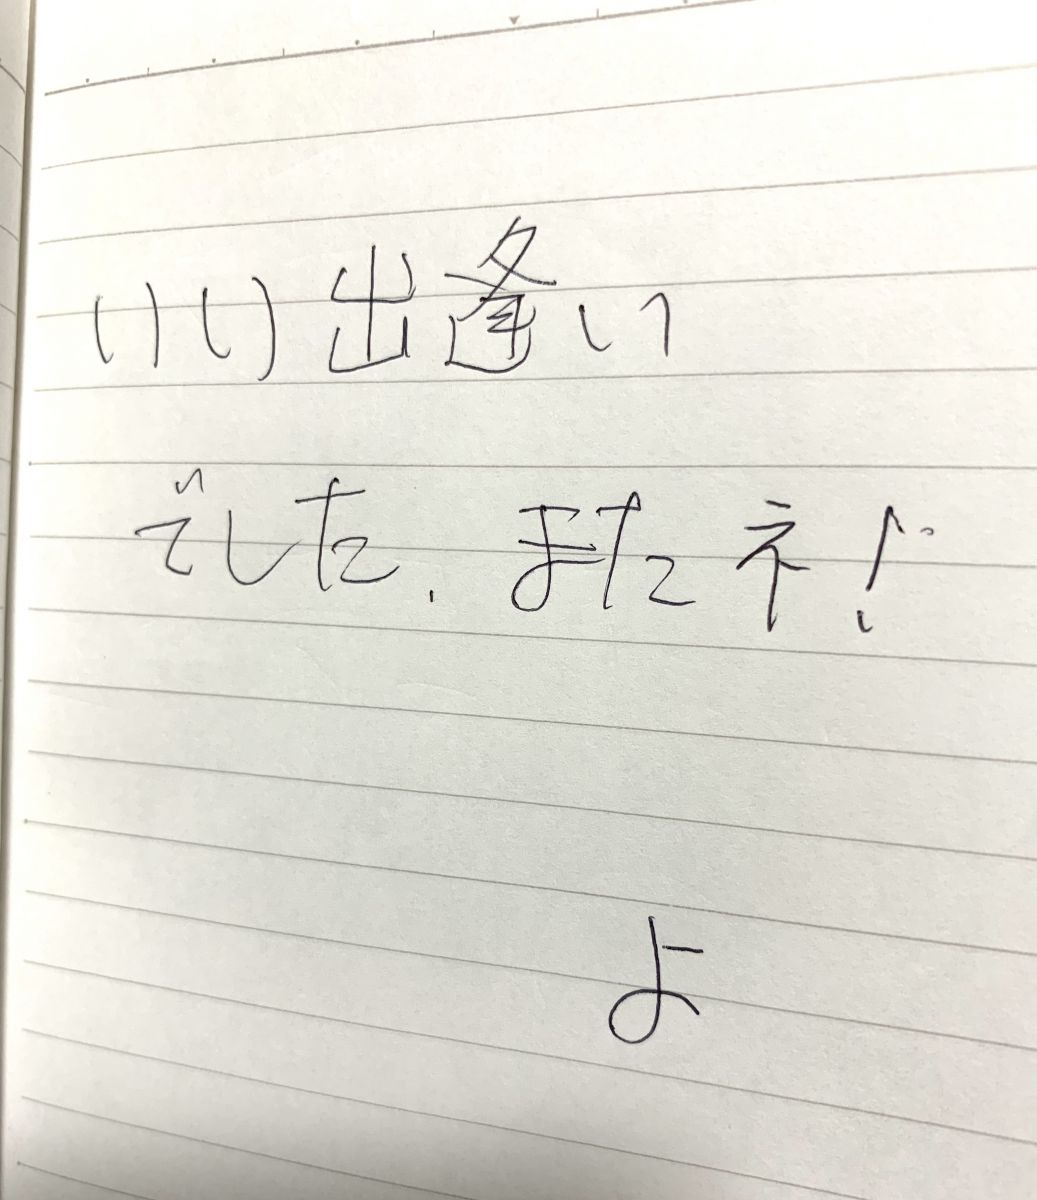 いい出逢い
でした. またネ!
よ